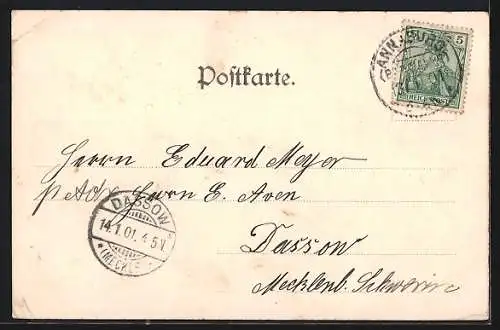 5
ANNABURG
REICHSPOST
Postkarte.
Herrn Eduard Meyer
p Adr. Herrn E. Aven
DASSOW
14.1.01. 4-5 N.
* (MECKLB.) *
Dassow
Mecklenb. Schwerin